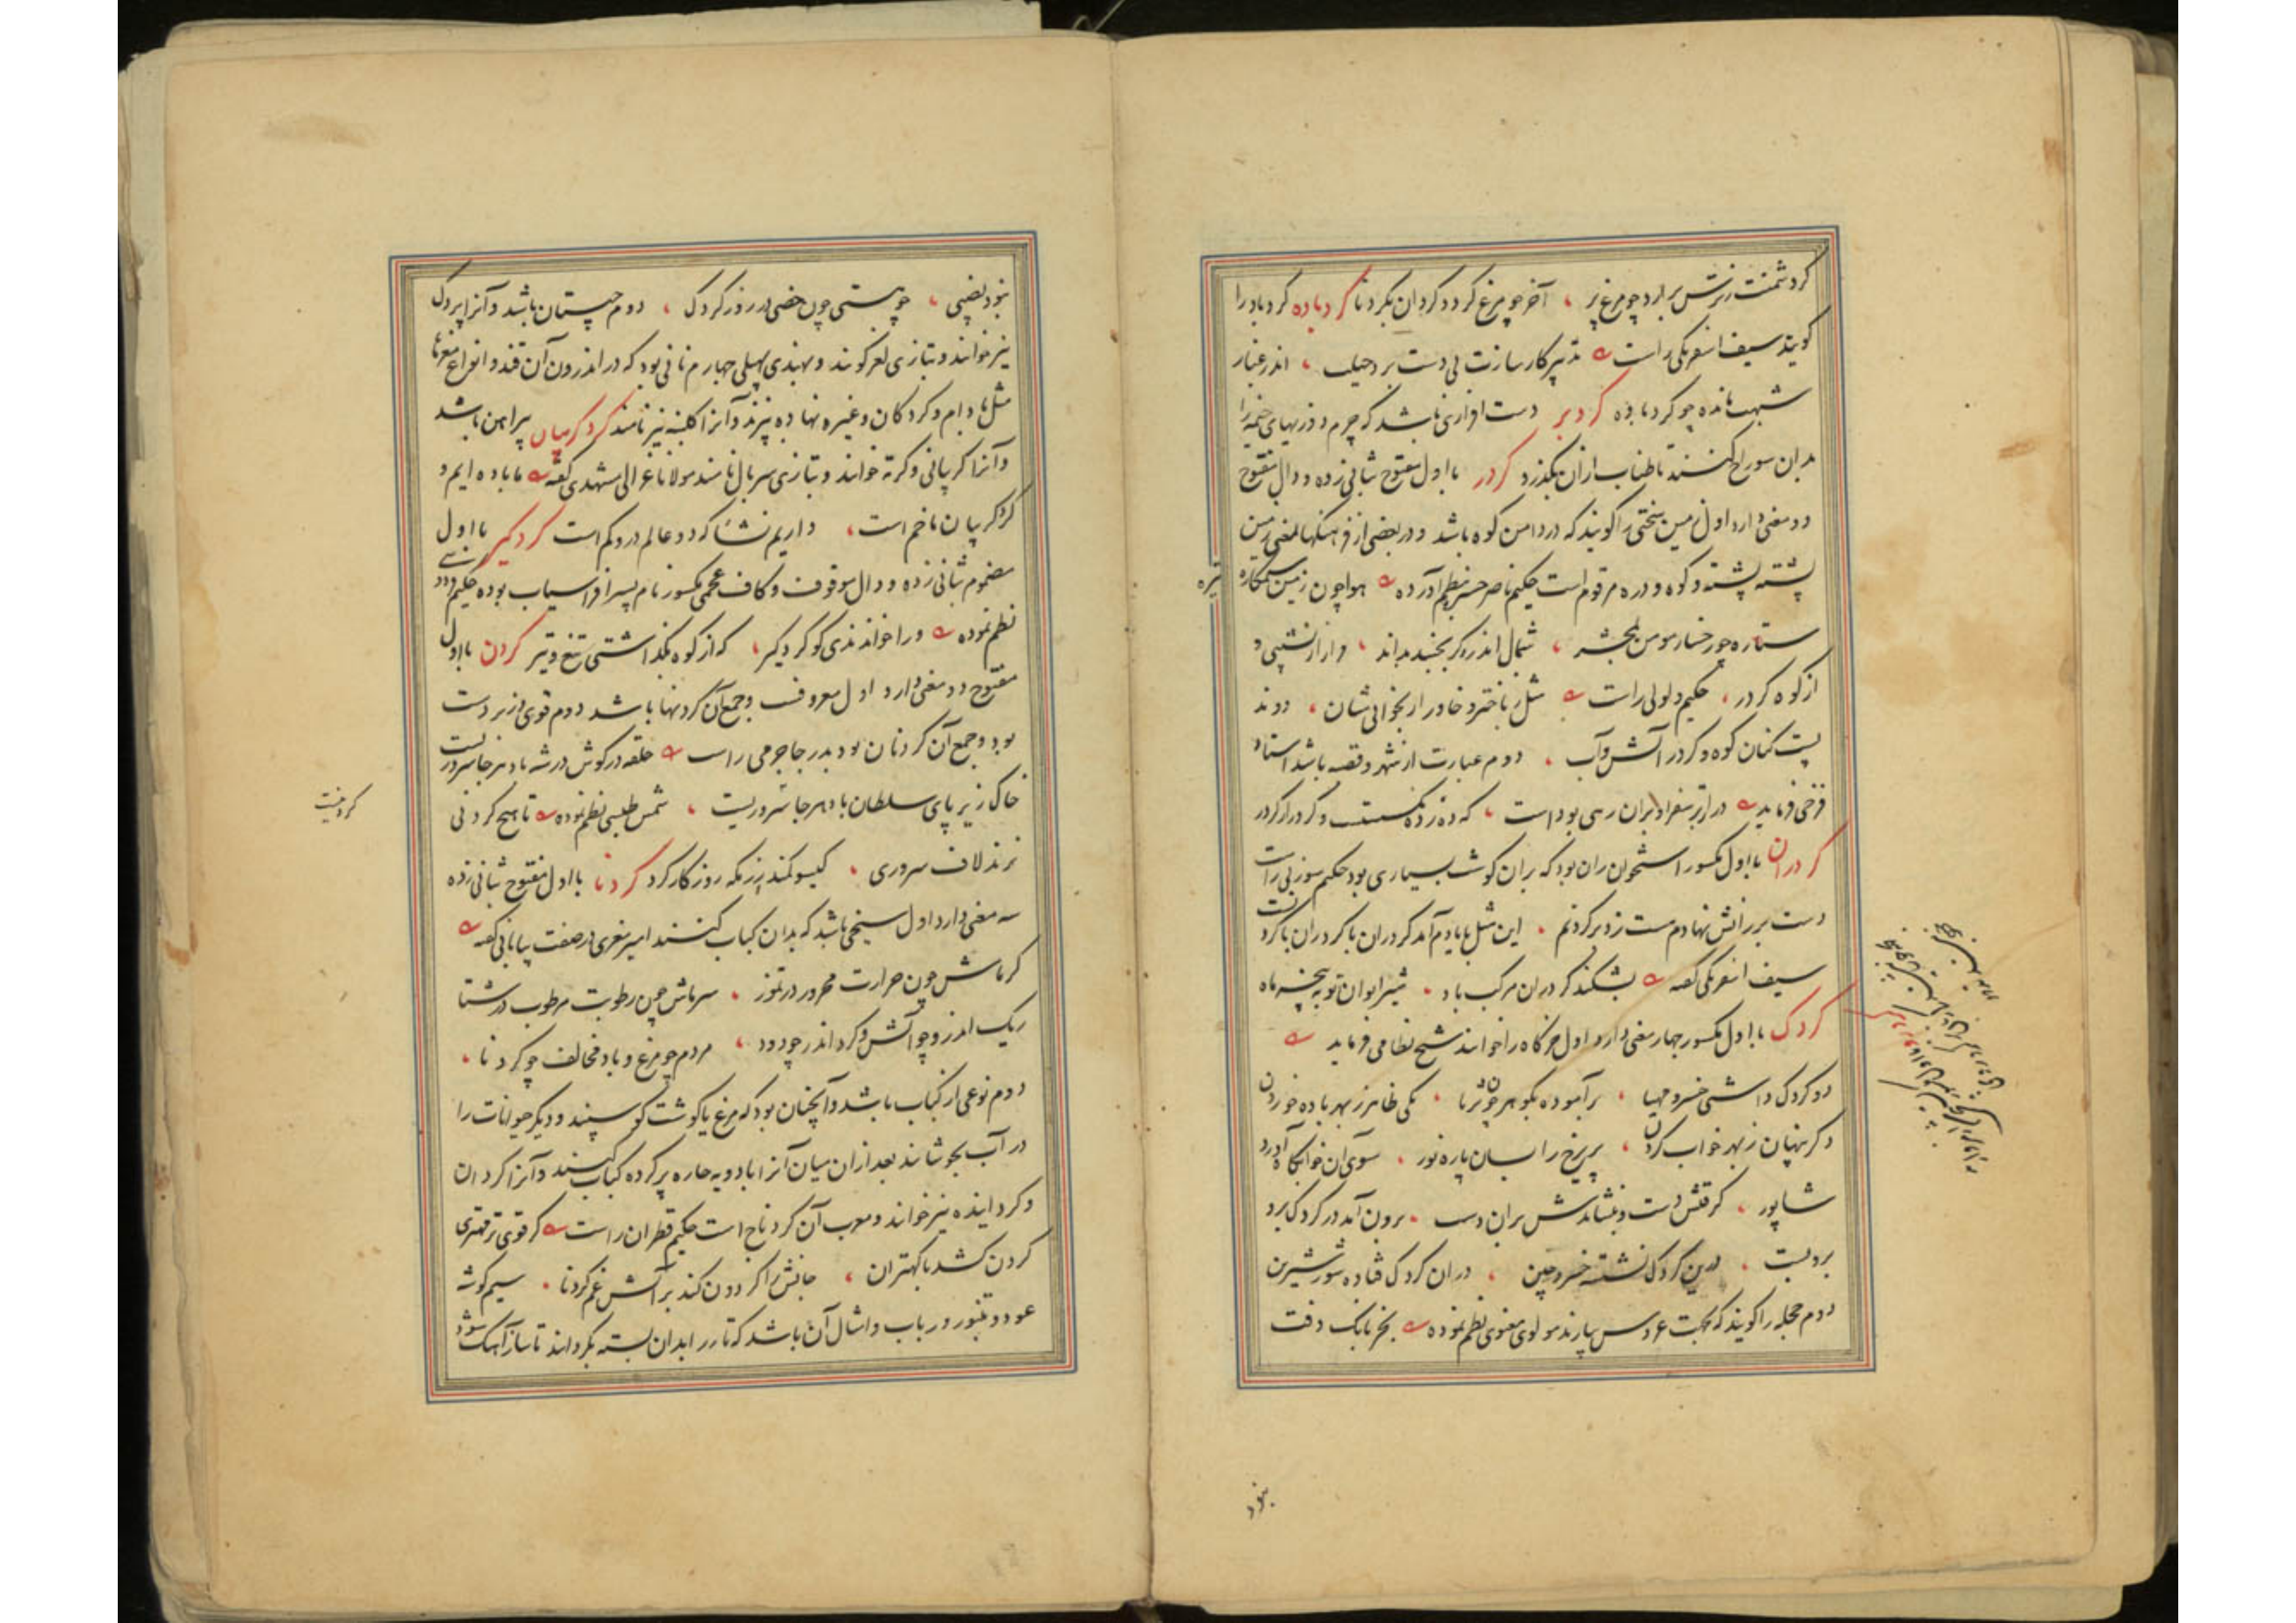 گردشمنت زترش برارد چو مرغ پر ، آخر چو مرغ گردد گردان بگردنا گردباده گردبادرا
گویند سیف اسفرنگی راست تدبیر کار سازت بی دست برد حیلت ، اندر غبار
شبهت مانده چو گردباده گردبر دست افزاری باشد که چرم دوزیهای خیمه را
بدان سوراخ کنند تا طناب ازان بگذرد گردر با اول مفتوح بثانی زده و دال مفتوح
دو معنی دارد اول زمین سختی را گویند که در دامن کوه باشد و در بعضی از فرهنگها بمعنی زمین
پشته پشته و کوه و دره مرقوم است حکیم ناصر خسرو بنظم آورده هوا چون زمین
ستاره چو رخسار مومن بمحشر ، شمال اندرو گر بجنبد بماند ، فراز از نشیبی و
از کوه گردر ، حکیم دلولی راست مثل باختر و خاور از بخوانی شان ، دوند
پست کنان کوه و گردر آتش و آب ، دوم عبارت از شهر و قصبه باشد استاد
فرخی فرماید در از تر سفر او بران رهی بوداست ، که ده زده نگسست و گردر از گردر
گردران با اول مکسور استخوان ران بود که بران گوشت بسیاری بود حکیم سوزنی راست
دست بر رانش نهادم مست زد بر گردنم ، این مثل با یادم آمد گردران با گردران با گردنست
سیف اسفرنگی گفته بشکند گردران مرکب باد ، شیر ایوان تو به پنجه ماه
گردک با اول مکسور چهار معنی دارد اول خرگاه را خوانند شیخ نظامی فرماید
دو گردک داشتی خسرو مهیا ، برآموده بگوهر چون ثریا ، یکی ظاهر ز بهر باده خوردن
دگر پنهان ز بهر خواب کردن ، پریرخ را بسان پاره نور ، سوی آن خوابگاه آورد
شاپور ، گرفتش دست و بنشاندش بران دست ، برون آمد در گردک برو
بربست ، درین گردک نشسته خسرو چین ، دران گردک فتاده شور شیرین
دوم حجله را گویند که بجهت عروس بیارند مولوی معنوی نظم نموده بجز بانگ دفت
نبود
نبود نصیبی ، چو هستی چون خصی در روز گردک ، دوم چیستان باشد و آنرا پردک
نیز خوانند و بتازی لغز گویند و بهندی پهیلی چهارم نانی بود که در اندرون آن قند و انواع مغزها
مثل بادام و گردکان و غیره نهاده پزند و آنرا کلیچه نیز نامند گردگریبان پیراهن باشد
و آنرا گریبانی و کرته خوانند و بتازی سربال نامند مولانا غزالی مشهدی گفته ما باده ایم و
گردگریبان ما خم است ، داریم نشأ که دو عالم درو گم است گردگیر با اول
مضموم بثانی زده و دال موقوف و کاف عجمی مکسور نام پسر افراسیاب بوده حکیم فردوسی
نظم نموده ورا خواندندی گو گردگیر ، که از کوه بگذاشتی تیغ و تیر گردن با اول
مفتوح دو معنی دارد اول معروف و جمع آن گردنها باشد دوم قوی و زبردست
بود و جمع آن گردنان بود بدر جاجرمی راست حلقه در گوش درت باد هر جا سروریست
خاک زیر پای سلطان باد هر جا سروریست ، شمس طبسی نظم نموده تا هیچ گردنی
نزند لاف سروری ، گیسو کمند بزمگه روزگار کرد گردنا با اول مفتوح بثانی زده
سه معنی دارد اول سیخی باشد که بدان کباب کنند امیر معزی در صفت بیابانی گفته
گرماش چون حرارت محرور در تموز ، سرماش چون رطوبت مرطوب در شتا
ریگ اندرو چو آتش و گرد اندر چو دود ، مردم چو مرغ و باد مخالف چو گردنا ،
دوم نوعی از کباب باشد و آنچنان بود که مرغ یا گوشت گوسپند و دیگر حیوانات را
در آب بجوشانند بعد ازان میان آنرا بادویه حاره پر کرده کباب کنند و آنرا گردان
و گردانیده نیز خوانند و معرب آن گردناج است حکیم قطران راست گر قوی تر مهتری
گردن کشد با کهتران ، جانش را گردون کند بر آتش غم گردنا ، سیم گوشه
عود و طنبور و رباب و امثال آن باشد که تار را بدان بسته بگردانند تا ساز آهنگ شود